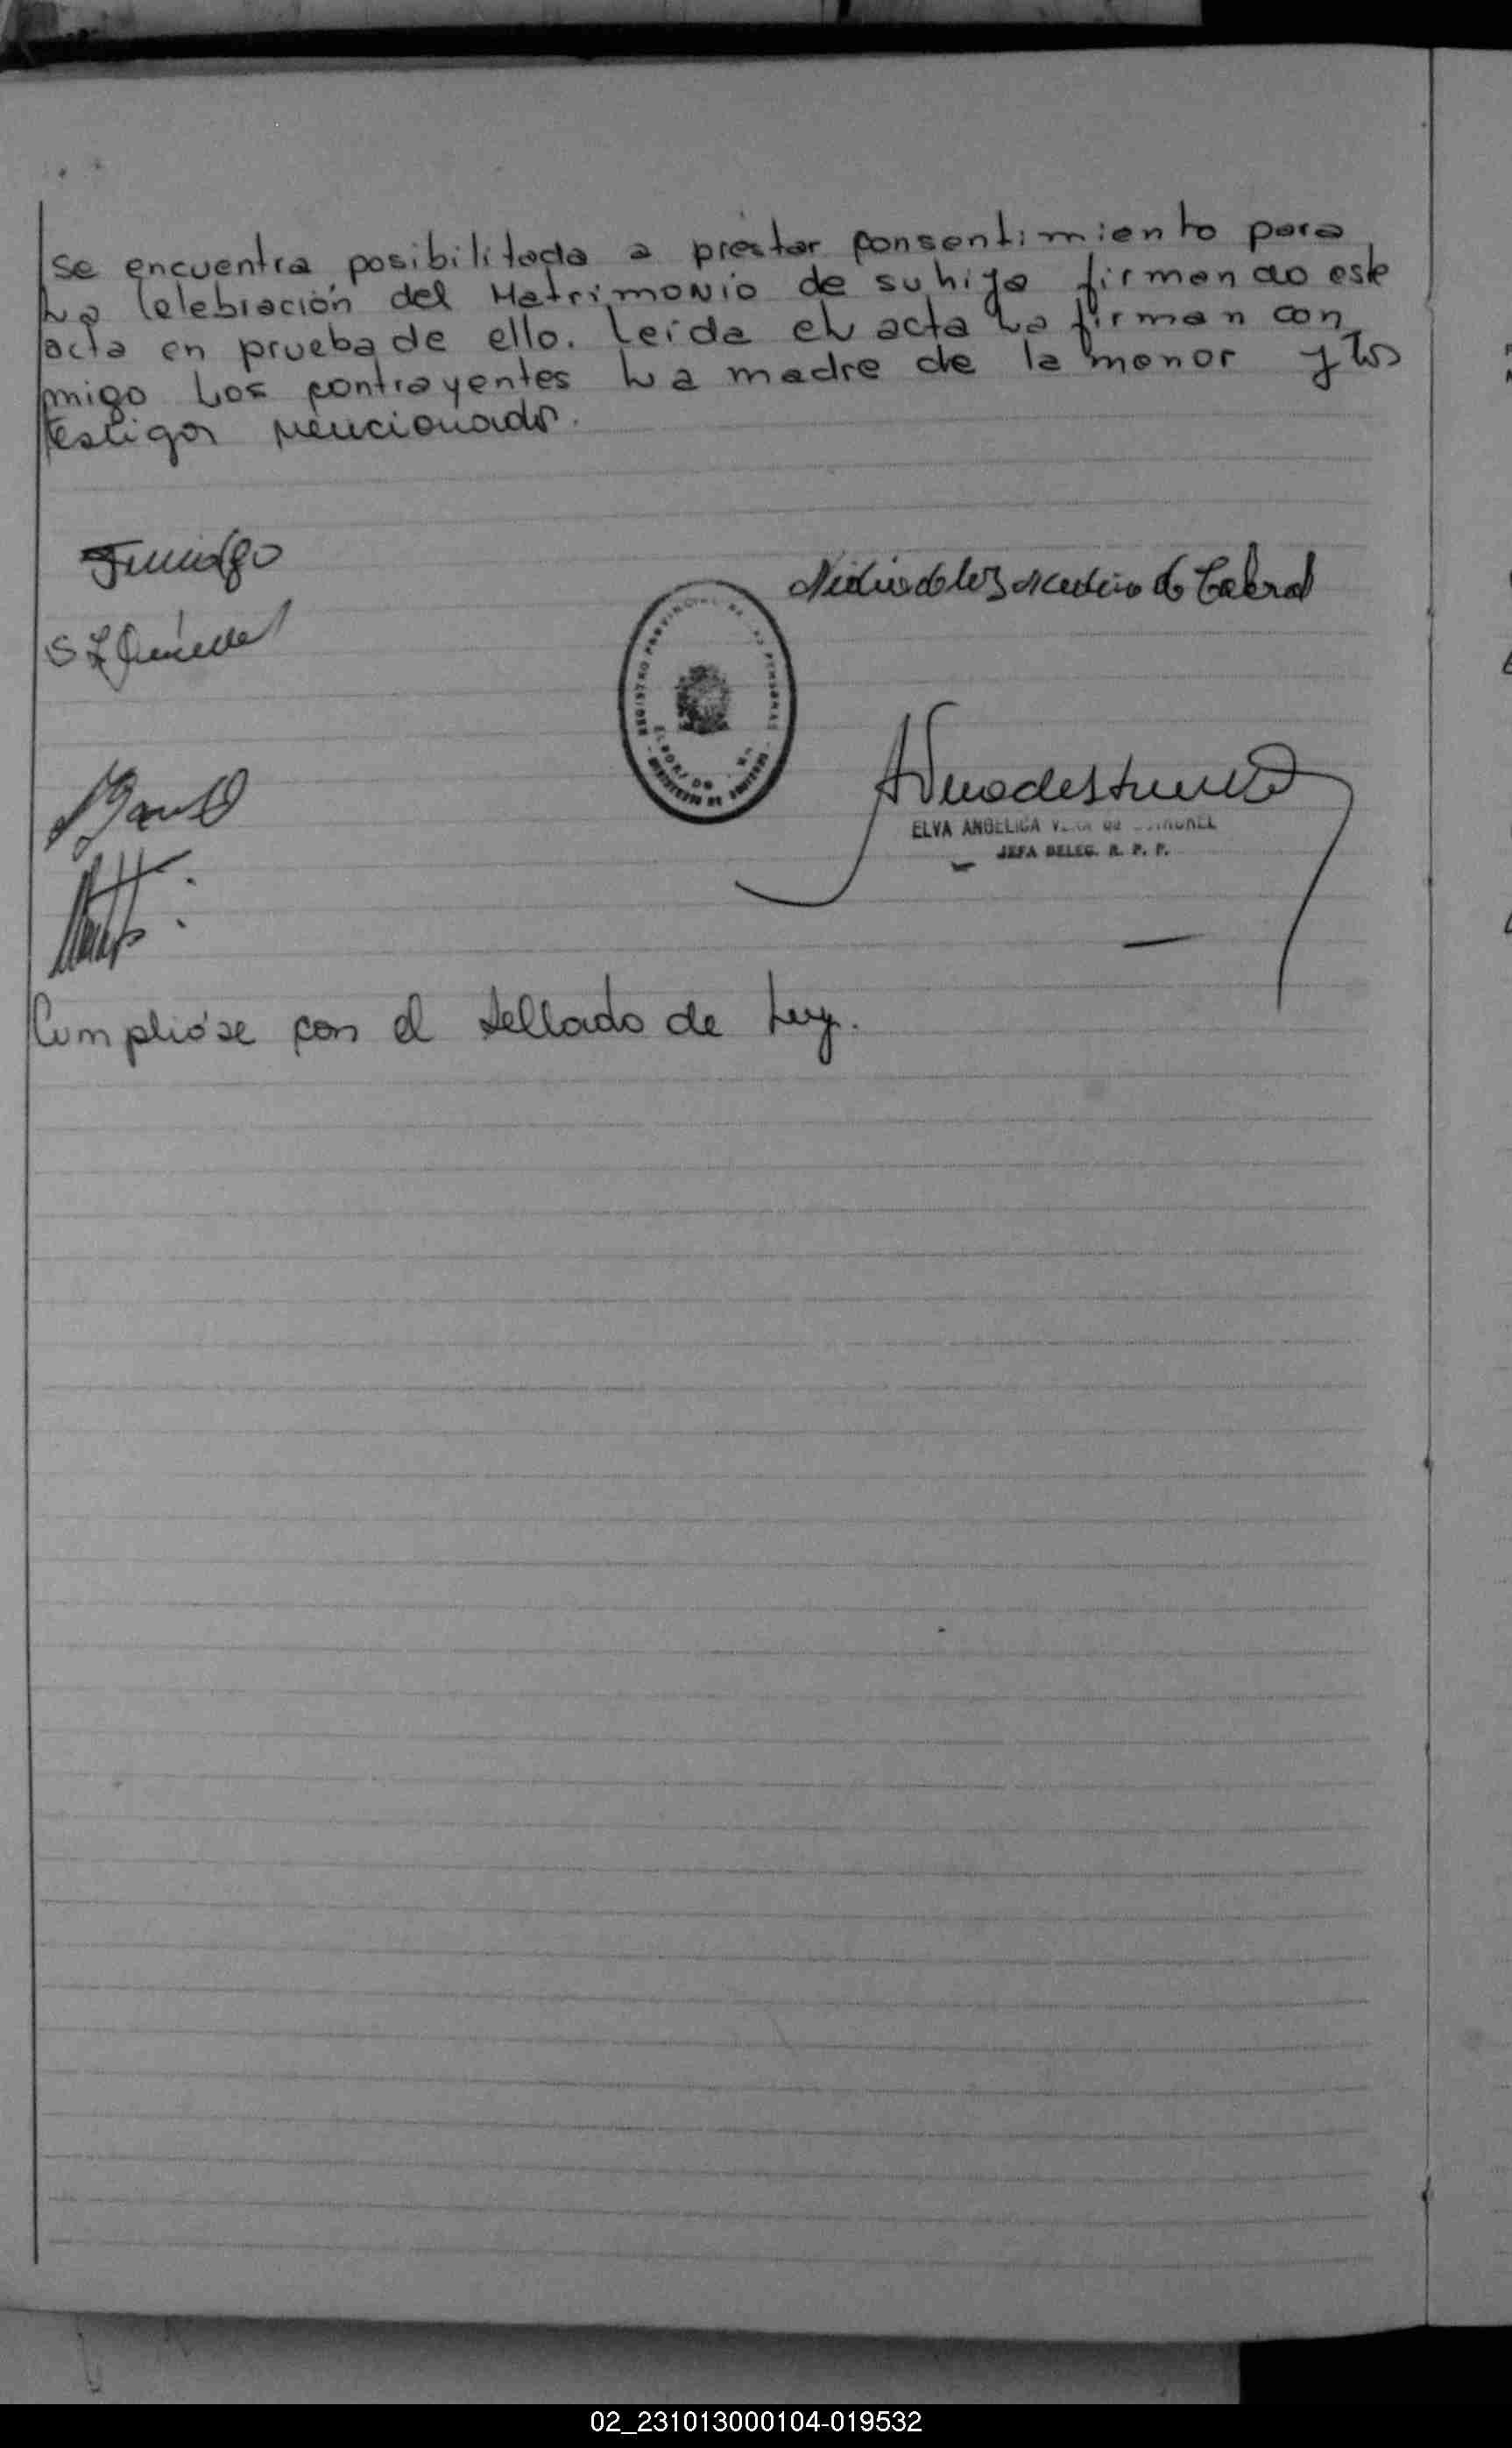 se encuentra posibilitada a prestar consentimiento para
La Celebración del Matrimonio de su hija firmando este
acta en prueba de ello. Leída el acta La firman con
migo Los contrayentes La madre de la menor y los
testigos mencionados.
de Cabral
REGISTRO PROVINCIAL DE PERSONAS
ELVA ANGELICA
JEFA DELEG. R. P. P.
Cumplióse con el sellado de Ley.
02_231013000104-019532